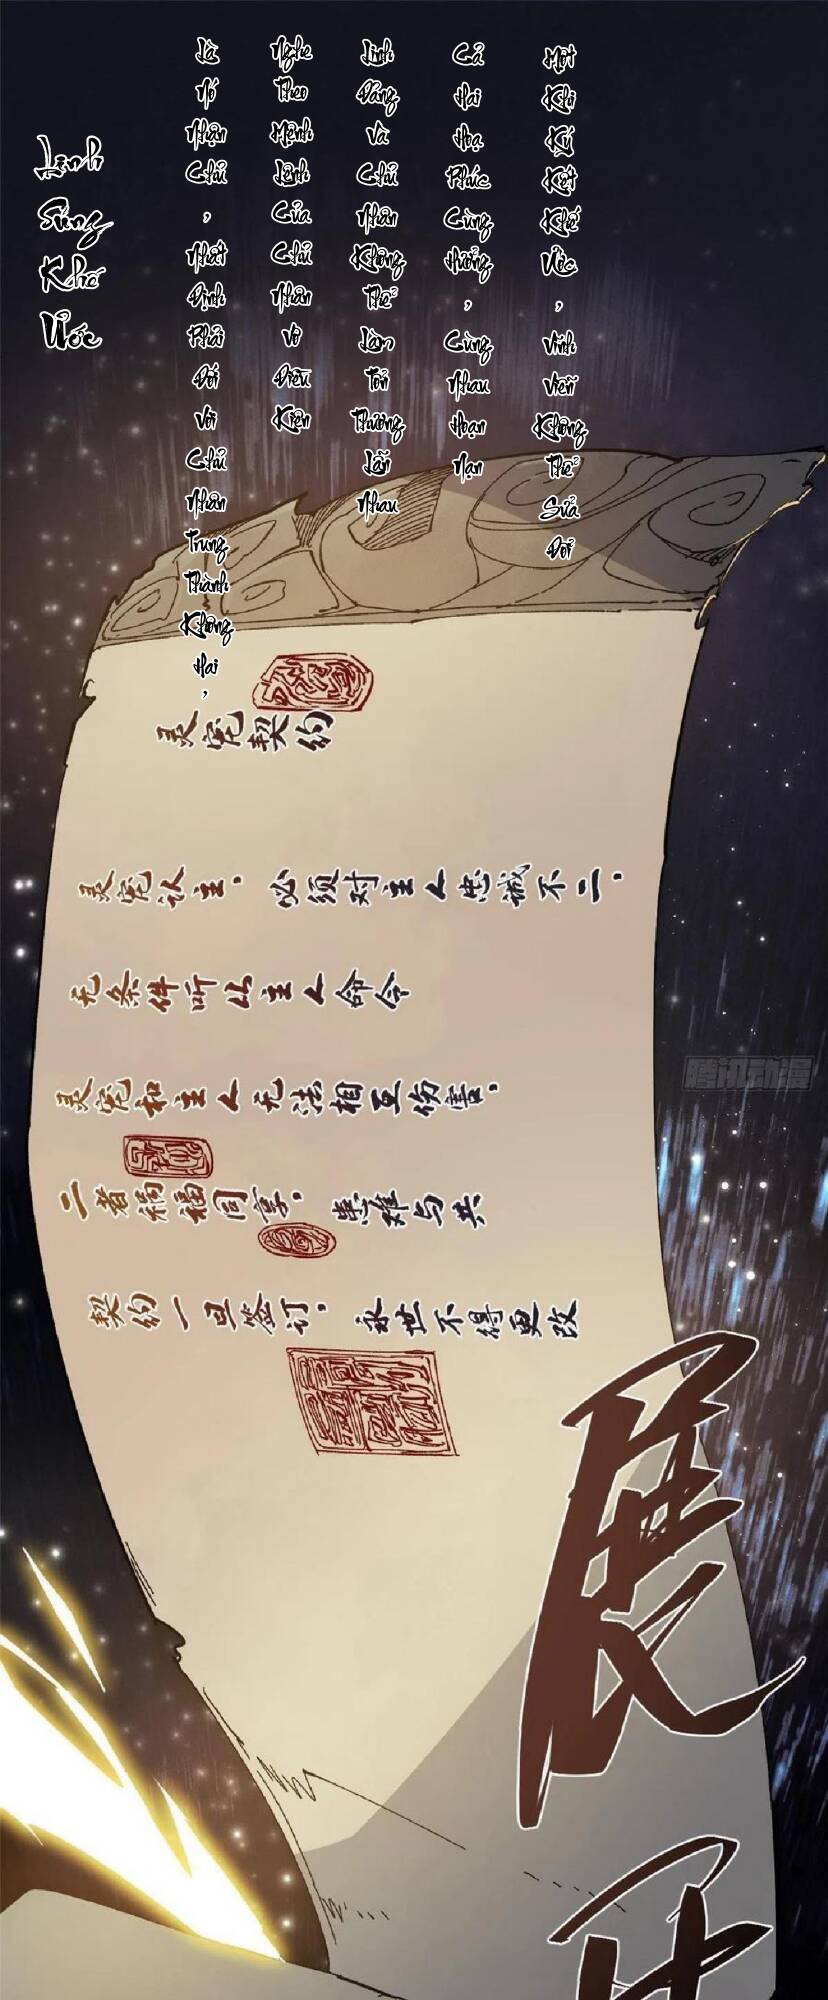 Linh
Sủng
Khế
Ước
Là Nó Nhận Chủ, Nhất Định Phải Đối Với Chủ Nhân Trung Thành Không Hai,
Nghe Theo Mệnh Lệnh Của Chủ Nhân Vô Điều Kiện
Linh Đáng Và Chủ Nhân Không Thể Làm Tổn Thương Lẫn Nhau
Cả Hai Hoạ Phúc Cùng Hưởng, Cùng Nhau Hoạn Nạn
Một Khi Ký Kết Khế Ước, Vĩnh Viễn Không Thể Sửa Đổi
灵宠契约
灵宠认主，必须对主人忠诚不二，
无条件听从主人命令
灵宠和主人无法相互伤害，
二者祸福同享，患难与共
契约一旦签订，永世不得更改
腾讯动漫
展